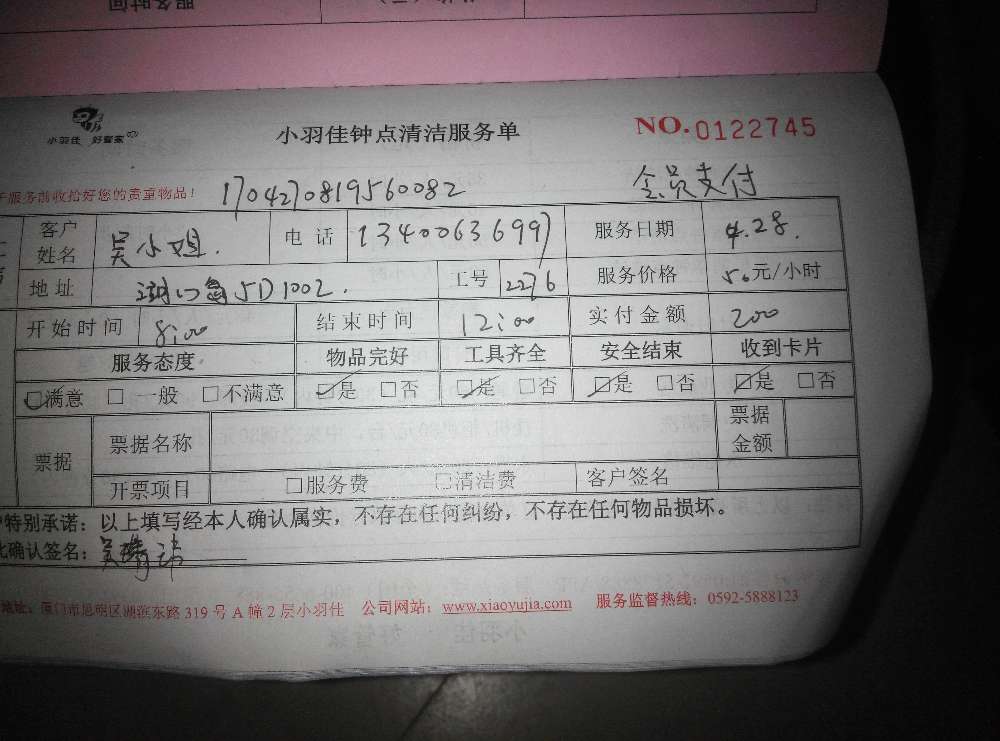 服务时间
小羽佳 好管家
小羽佳钟点清洁服务单
NO.0122745
服务前收拾好您的贵重物品！
1704270819560082
会员支付
客户姓名 吴小姐. 电话 13400636997 服务日期 4.28.
地址 5D1002. 工号 2276 服务价格 50元/小时
开始时间 8:00 结束时间 12:00 实付金额 200
服务态度 物品完好 工具齐全 安全结束 收到卡片
☑满意 □一般 □不满意 ☑是 □否 ☑是 □否 ☑是 □否 ☑是 □否
票据 票据名称 票据金额
开票项目 □服务费 □清洁费 客户签名
特别承诺：以上填写经本人确认属实，不存在任何纠纷，不存在任何物品损坏。
此确认签名：吴
地址：厦门市思明区湖滨东路 319 号 A 幢 2 层小羽佳 公司网站：www.xiaoyujia.com 服务监督热线：0592-5888123